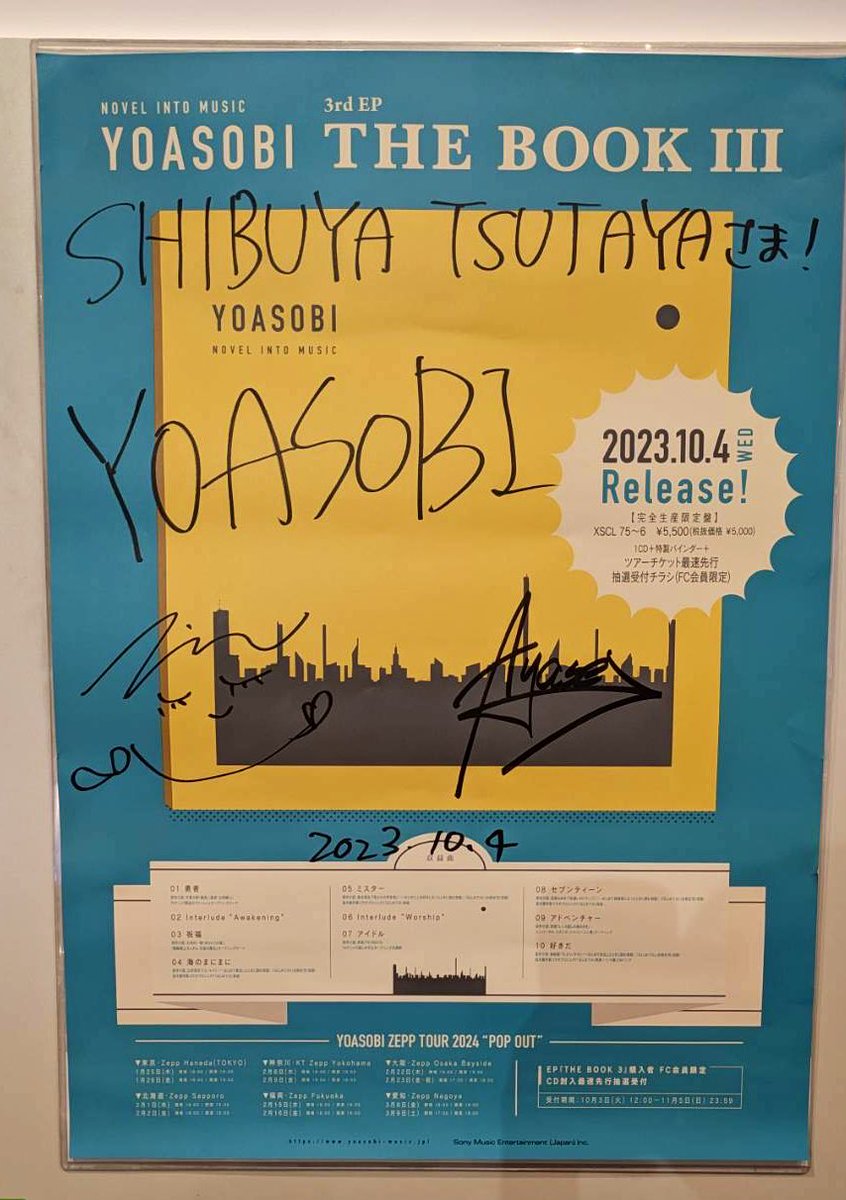 NOVEL INTO MUSIC
YOASOBI
3rd EP
THE BOOK III
SHIBUYA TSUTAYAさま!
YOASOBI
NOVEL INTO MUSIC
YOASOBI
2023.10.4 WED
Release!
【完全生産限定盤】
XSCL 75〜6 ¥5,500(税抜価格 ¥5,000)
1CD+特製バインダー+
ツアーチケット最速先行
抽選受付チラシ(FC会員限定)
Ayase
2023.10.4
収録曲
01 勇者
02 Interlude "Awakening"
03 祝福
04 海のまにまに
05 ミスター
06 Interlude "Worship"
07 アイドル
08 セブンティーン
09 アドベンチャー
10 好きだ
YOASOBI ZEPP TOUR 2024 "POP OUT"
▼東京・Zepp Haneda(TOKYO)
1月25日(木)
1月26日(金)
▼北海道・Zepp Sapporo
2月1日(木)
2月2日(金)
▼神奈川・KT Zepp Yokohama
2月8日(木)
2月9日(金)
▼福岡・Zepp Fukuoka
2月15日(木)
2月16日(金)
▼大阪・Zepp Osaka Bayside
2月22日(木)
2月23日(金・祝)
▼愛知・Zepp Nagoya
3月8日(金)
3月9日(土)
EP「THE BOOK 3」購入者 FC会員限定
CD封入最速先行抽選受付
受付期間:10月3日(火) 12:00〜11月5日(日) 23:59
https://www.yoasobi-music.jp/
Sony Music Entertainment (Japan) Inc.